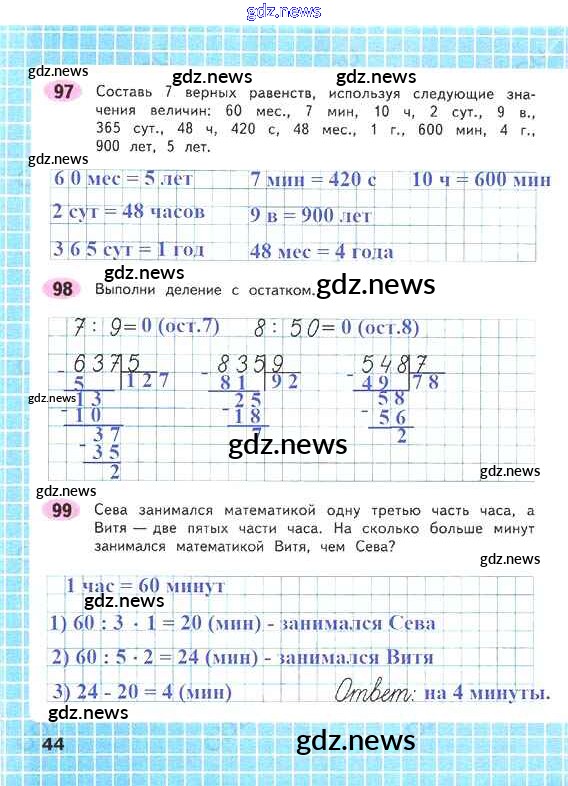 gdz.news
gdz.news
gdz.news gdz.news
97 Составь 7 верных равенств, используя следующие зна-
чения величин: 60 мес., 7 мин, 10 ч, 2 сут., 9 в.,
365 сут., 48 ч, 420 с, 48 мес., 1 г., 600 мин, 4 г.,
900 лет, 5 лет.
gdz.news
6 0 мес = 5 лет 7 мин = 420 с 10 ч = 600 мин
2 сут = 48 часов 9 в = 900 лет
3 6 5 сут = 1 год 48 мес = 4 года
gdz.news
98 Выполни деление с остатком.
gdz.news
7 : 9 = 0 (ост.7) 8 : 50 = 0 (ост.8)
637 5 835 9 548 7
- 5 1 2 7 - 81 9 2 - 49 7 8
- 1 3 - 2 5 - 5 8
1 0 1 8 5 6
- 3 7 7 2
3 5
2
gdz.news
gdz.news
gdz.news
gdz.news
99 Сева занимался математикой одну третью часть часа, а
Витя — две пятых части часа. На сколько больше минут
занимался математикой Витя, чем Сева?
gdz.news
1 час = 60 минут
gdz.news
1) 60 : 3 · 1 = 20 (мин) - занимался Сева
2) 60 : 5 · 2 = 24 (мин) - занимался Витя
3) 24 - 20 = 4 (мин) Ответ: на 4 минуты.
gdz.news
44
gdz.news